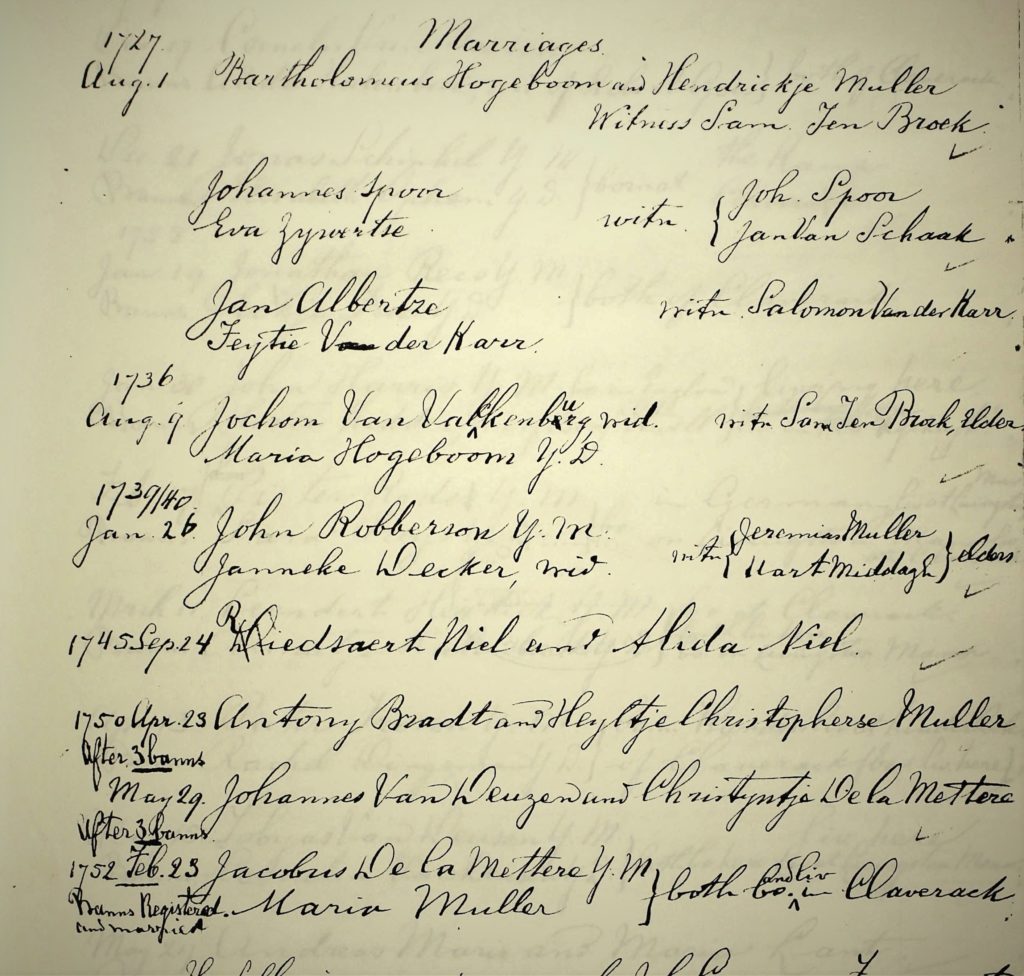 1727. Marriages.
Aug. 1 Bartholomeus Hogeboom and Hendrickje Muller
Witness Sam. Ten Broek.
Johannes Spoor
Eva Zywertse
witn. { Joh. Spoor
Jan Van Schaak
Jan Albertze
Feytie Van der Karr.
witn. Salomon Van der Karr.
1736
Aug. 9 Jochom Van Valckenburg, wid. witn. Sam Ten Broek, Elder
Maria Hogeboom Y. D.
1739/40.
Jan. 26. John Robberson Y. M.
Janneke Decker, wid.
witn { Jeremias Muller
Hart Middagh } elders.
1745 Sep. 24 Riedsaert Niel and Alida Niel.
1750 Apr. 23 Antony Bradt and Heyltje Christopherse Muller
After 3 banns
May 29. Johannes Van Deuzen and Christyntje De la Mettere
After 3 banns.
1752 Feb. 23 Jacobus De la Mettere Y. M
Banns Registered. Maria Muller
and married
} both bo. and liv in Claverack